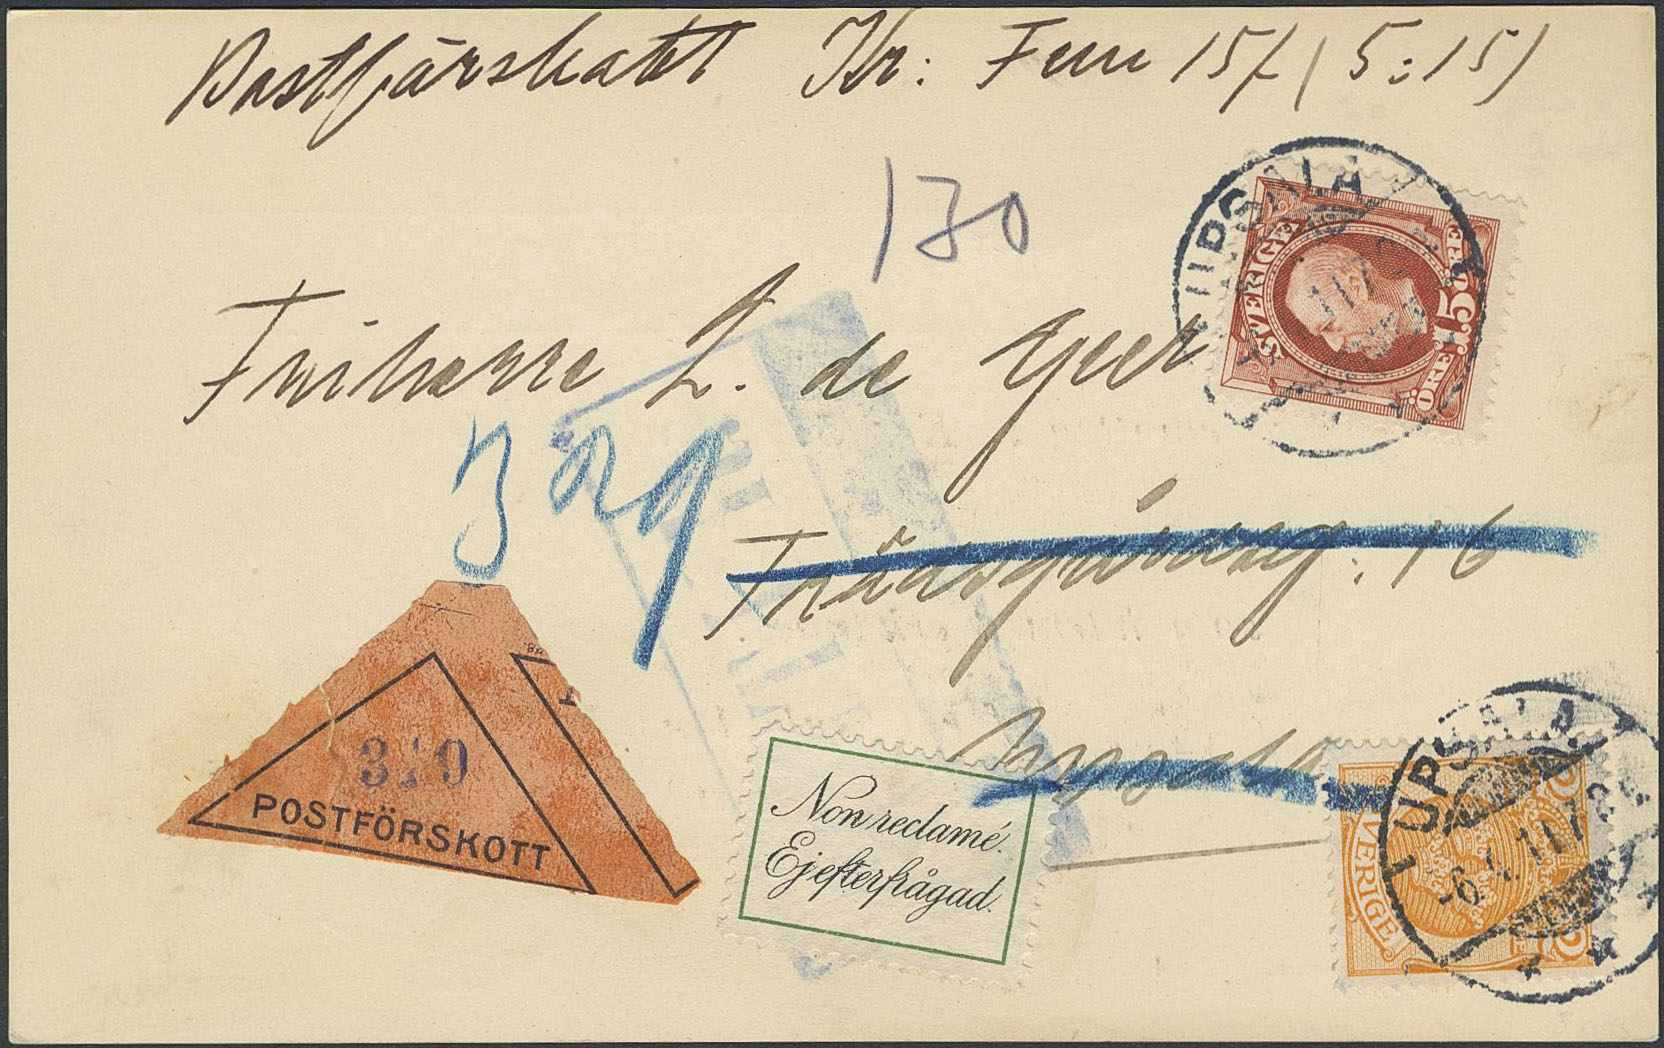 Postförskott Kr: Fem 15/ (5:15)
130
UPSALA
SVERIGE
15 ÖRE
ÖRE
Friherre L. de Geer
Trädgårdsg. 16
Upsala
319
POSTFÖRSKOTT
Non reclamé.
Ej efterfrågad.
UPSALA
-6.1.11
SVERIGE